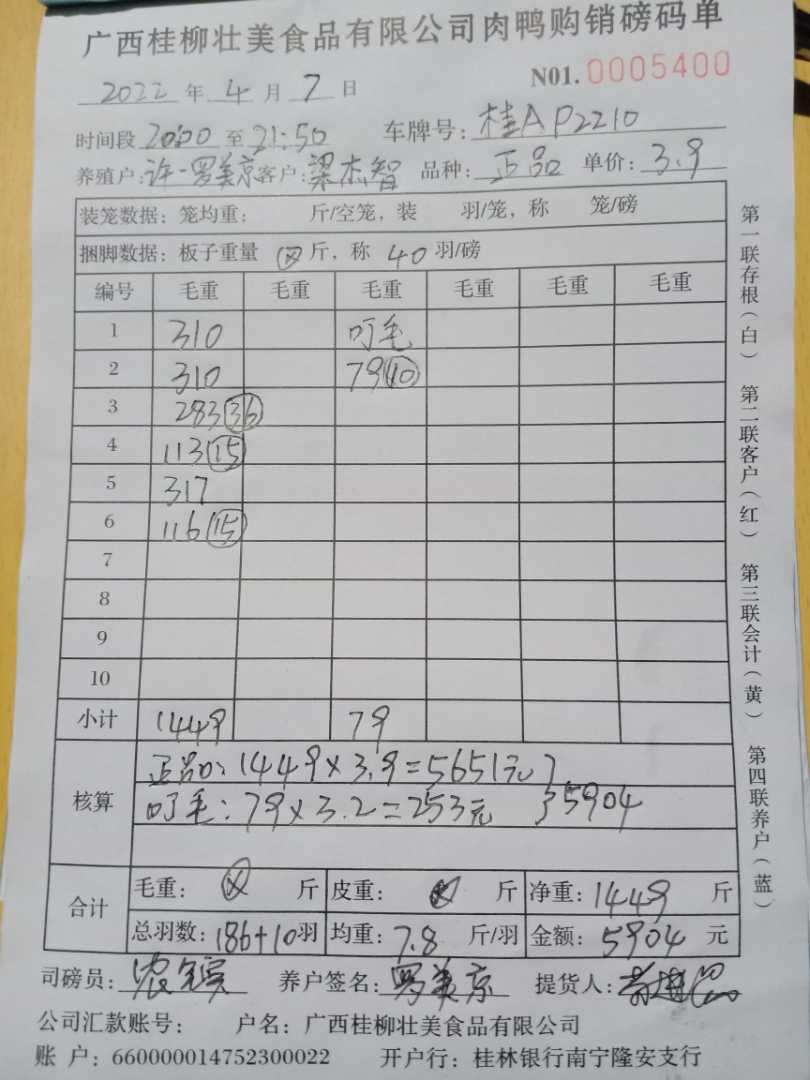 广西桂柳壮美食品有限公司肉鸭购销磅码单
2022 年 4 月 7 日 N01. 0005400
时间段 20:00 至 21:50 车牌号: 桂A P2210
养殖户: 许-罗美京 客户: 梁杰智 品种: 正品 单价: 3.9
装笼数据: 笼均重: 斤/空笼, 装 羽/笼, 称 笼/磅
捆脚数据: 板子重量 斤, 称 40 羽/磅
编号 毛重 毛重 毛重 毛重 毛重 毛重
1 310 叮毛
2 310 79 40
3 283 36
4 113 15
5 317
6 116 15
7
8
9
10
小计 1449 79
核算
正品: 1449×3.9=5651元
叮毛: 79×3.2=253元 }5904
合计
毛重: 斤 皮重: 斤 净重: 1449 斤
总羽数: 186+10 羽 均重: 7.8 斤/羽 金额: 5904 元
司磅员: 养户签名: 罗美京 提货人:
公司汇款账号: 户名: 广西桂柳壮美食品有限公司
账 户: 660000014752300022 开户行: 桂林银行南宁隆安支行
第一联存根(白) 第二联客户(红) 第三联会计(黄) 第四联养户(蓝)